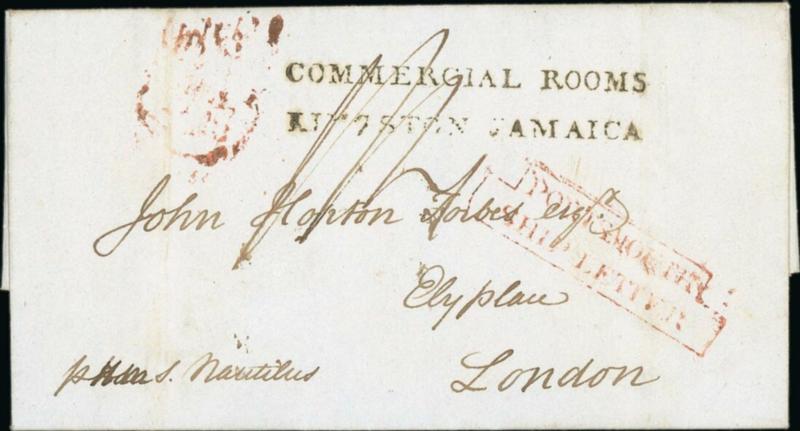 COMMERCIAL ROOMS
KINGSTON JAMAICA
John Hopton Forbes Esqr
PORTSMOUTH
SHIP LETTER
Ely place
London
p S. Nautilus